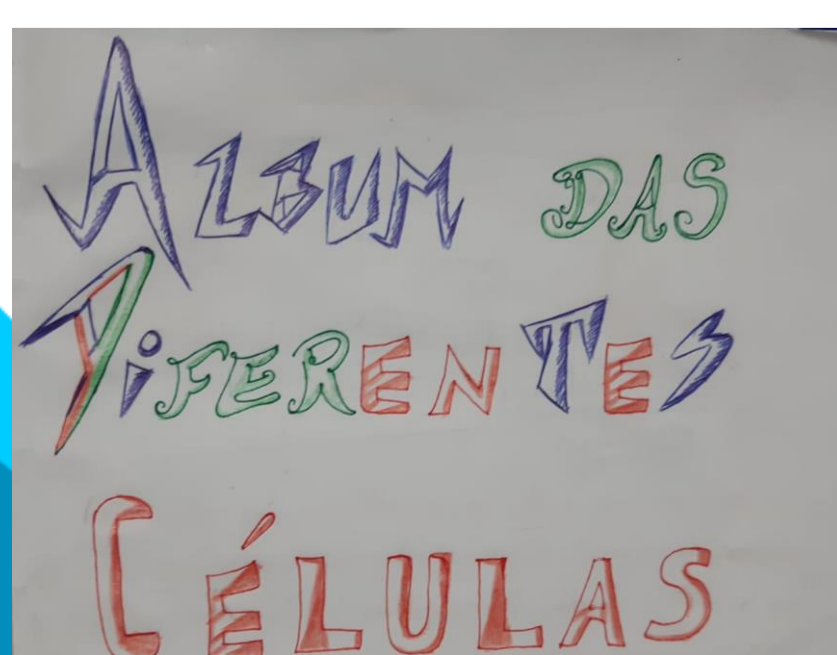 ALBUM DAS
DiFERENTES
CÉLULAS